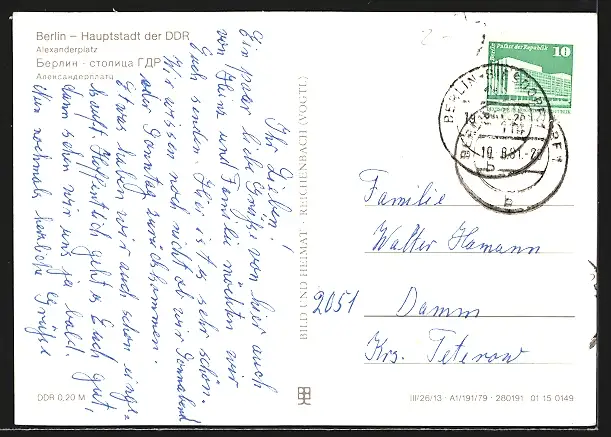 Berlin – Hauptstadt der DDR
Alexanderplatz
Берлин - столица ГДР
Александерплатц
Ihr Lieben!
Ein paar liebe Grüße von hier auch
von Heinz und Familie möchten wir
Euch senden. Hier ist es sehr schön.
Wir wissen noch nicht ob wir Sonnabend
oder Sonntag zurückkommen.
Etwas haben wir auch schon einge-
kauft. Hoffentlich geht es Euch gut,
dann sehen wir uns ja bald.
Nun nochmals herzliche Grüße
DDR 0,20 M
BILD UND HEIMAT · REICHENBACH (VOGTL)
Palast der Republik
Berlin
10
DDR
BERLIN-BIESDORF
10.6.81.-20
b
Familie
Walter Hamann
2051 Damm
Krs. Teterow
III/26/13 · A1/191/79 · 280191 01 15 0149